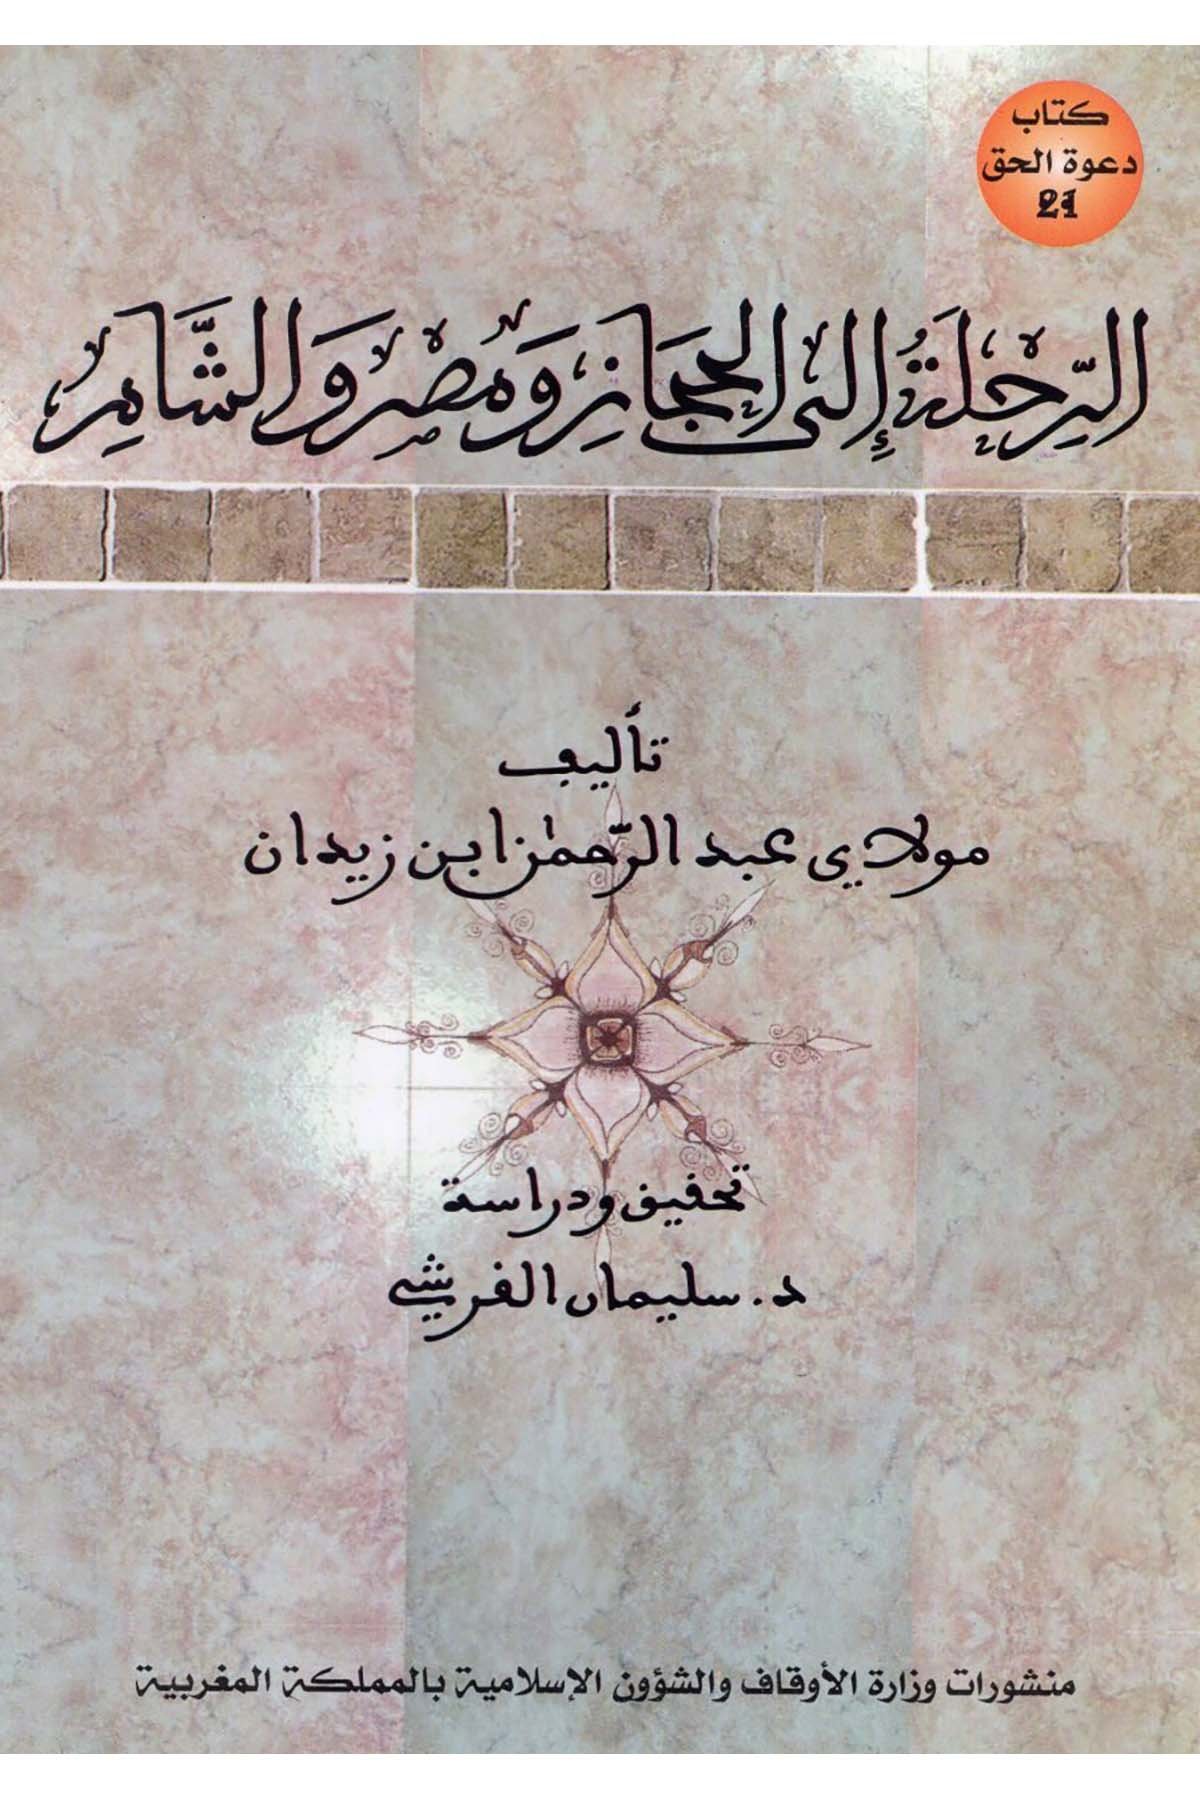 كتاب
دعوة الحق
21
الرِّحْلَةُ إِلَى الحِجَازِ وَمِصْرَ وَالشَّامِ
تأليف
مولاي عبد الرّحمٰن ابن زيدان
تحقيق ودراسة
د. سليمان القرشي
منشورات وزارة الأوقاف والشؤون الإسلامية بالمملكة المغربية